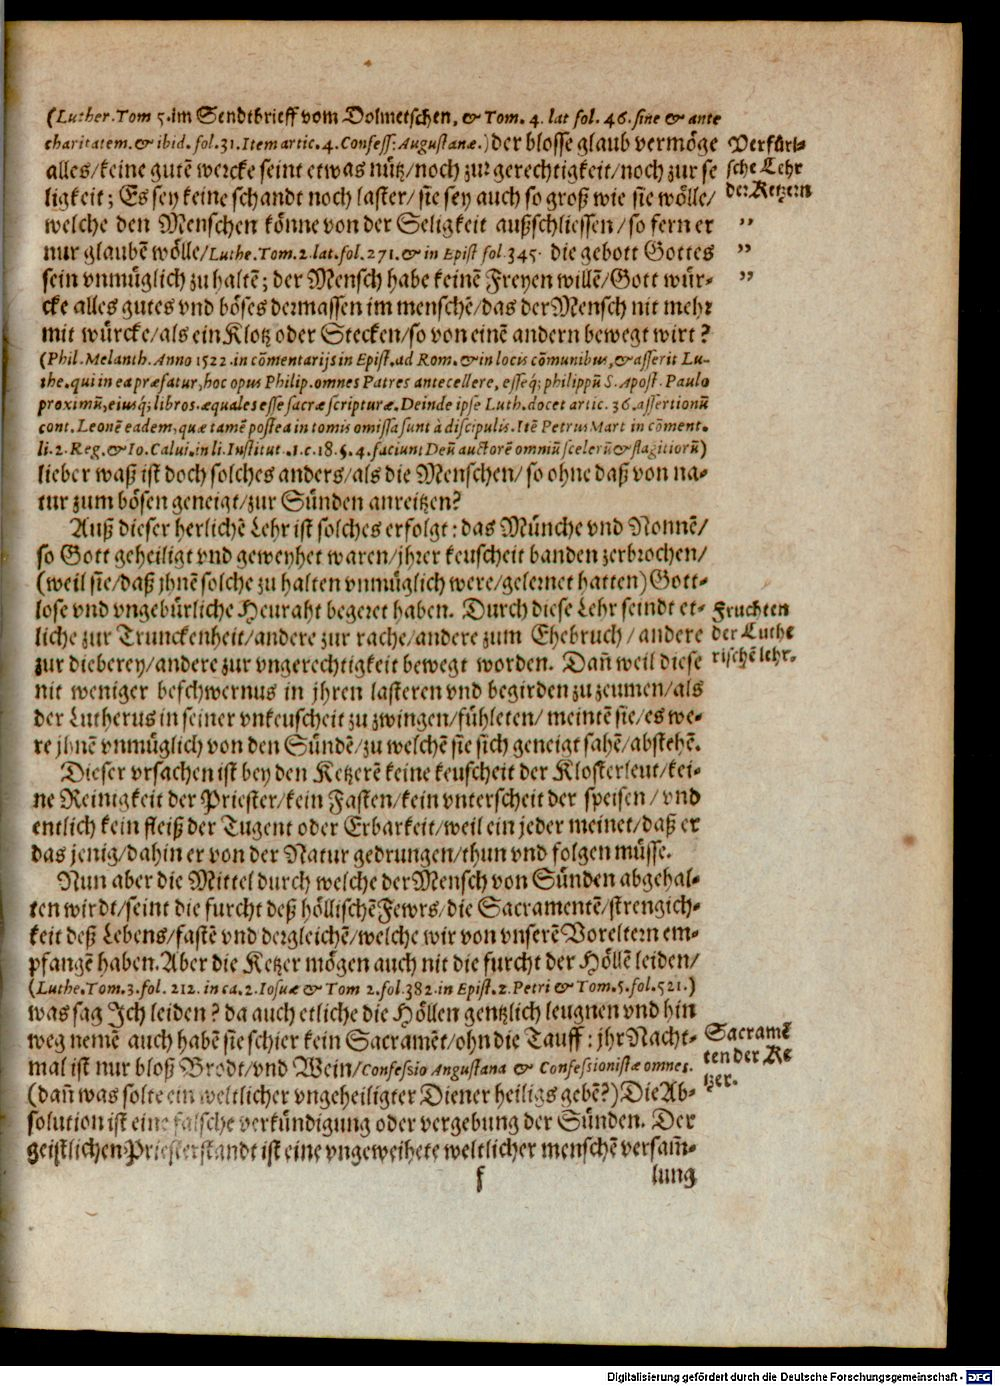 (Luther. Tom 5. im Sendtbrieff vom Dolmetschen, & Tom. 4. lat fol. 46. sine & ante
charitatem. & ibid. fol. 31. Item artic. 4. Confess: Augustanæ.) der blosse glaub vermöge
alles/keine gutẽ wercke seint etwas nütz/noch zur gerechtigkeit/noch zur se
ligkeit; Es sey keine schandt noch laster/ sie sey auch so groß wie sie wölle/
welche den Menschen könne von der Seligkeit außschliessen/so fern er
nur glaubẽ wölle/Luthe. Tom. 2. lat. fol. 271. & in Epist fol. 345. die gebott Gottes
sein vnmüglich zu haltẽ; der Mensch habe keinẽ Freyen willẽ/Gott wür-
cke alles gutes vnd böses dermassen im menschẽ/das der Mensch nit mehr
mit würcke/als ein Klotz oder Stecken/so von einẽ andern bewegt wirt?
(Phil. Melanth. Anno 1522. in cõmentarijs in Epist. ad Rom. & in locis cõmunibus, & asserit Lu-
the. qui in ea præfatur, hoc opus Philip. omnes Patres antecellere, esseq; philippũ S. Apost. Paulo
proximũ, eiusq; libros æquales esse sacræ scripturæ. Deinde ipse Luth. docet artic. 36. assertionũ
cont. Leonẽ eadem, quæ tamẽ postea in tomis omissa sunt à discipulis. Itẽ Petrus Mart in cõment.
li. 2. Reg. & Io. Calui. in li. Institut. 1. c. 18. §. 4. faciunt Deũ auctorẽ omniũ scelerũ & flagitiorũ)
lieber waß ist doch solches anders/als die Menschen/so ohne daß von na-
tur zum bösen geneigt/zur Sünden anreitzen?
Auß dieser herlichẽ Lehr ist solches erfolgt: das Münche vnd Nonnẽ/
so Gott geheiligt vnd geweyhet waren/jhrer keuscheit banden zerbrochen/
(weil sie/daß jhnẽ solche zu halten vnmüglich were/gelernet hatten) Gott-
lose vnd vngebürliche Heuraht begeret haben. Durch diese Lehr seindt et-
liche zur Trunckenheit/andere zur rache/andere zum Ehebruch/andere
zur dieberey/andere zur vngerechtigkeit bewegt worden. Dañ weil diese
nit weniger beschwernus in jhren lasteren vnd begirden zu zeumen/als
der Lutherus in seiner vnkeuscheit zu zwingen/fühleten/ meintẽ sie/es we-
re jhnẽ vnmüglich von den Sündẽ/zu welchẽ sie sich geneigt sahẽ/abstehẽ.
Dieser vrsachen ist bey den Ketzerẽ keine keuscheit der Klosterleut/kei-
ne Reinigkeit der Priester/kein Fasten/kein vnterscheit der speisen/vnd
entlich kein fleiß der Tugent oder Erbarkeit/weil ein jeder meinet/daß er
das jenig/dahin er von der Natur gedrungen/thun vnd folgen müsse.
Nun aber die Mittel durch welche der Mensch von Sünden abgehal-
ten wirdt/seint die furcht deß höllischẽ Fewrs/die Sacramentẽ/strengich-
keit deß Lebens/fastẽ vnd dergleichẽ/welche wir von vnserẽ Voreltern em-
pfangẽ haben. Aber die Ketzer mögen auch nit die furcht der Höllẽ leiden/
(Luthe. Tom. 3. fol. 212. in ca. 2. Iosuæ & Tom 2. fol. 382. in Epist. 2. Petri & Tom. 5. fol. 521.)
was sag Ich leiden? da auch etliche die Höllen gentzlich leugnen vnd hin
weg nemẽ auch habẽ sie schier kein Sacramẽt/ohn die Tauff: jhr Nacht-
mal ist nur bloß Brodt/vnd Wein/Confessio Augustana & Confessionistæ omnes.
(dañ was solte ein weltlicher vngeheiligter Diener heiligs gebẽ?) Die Ab-
solution ist eine falsche verkündigung oder vergebung der Sünden. Der
geistlichen Priesterstandt ist eine vngeweihete weltlicher menschẽ versam̃-
f lung
Verfürl-
sche Lehr
der Ketzern
”
”
”
Fruchten
der Luthe
rischẽ lehr.
Sacramẽ
ten der Ke
tzer.
Digitalisierung gefördert durch die Deutsche Forschungsgemeinschaft - DFG